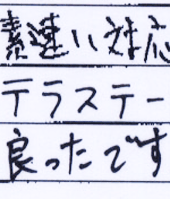 素速い対応
テラステー
良ったです